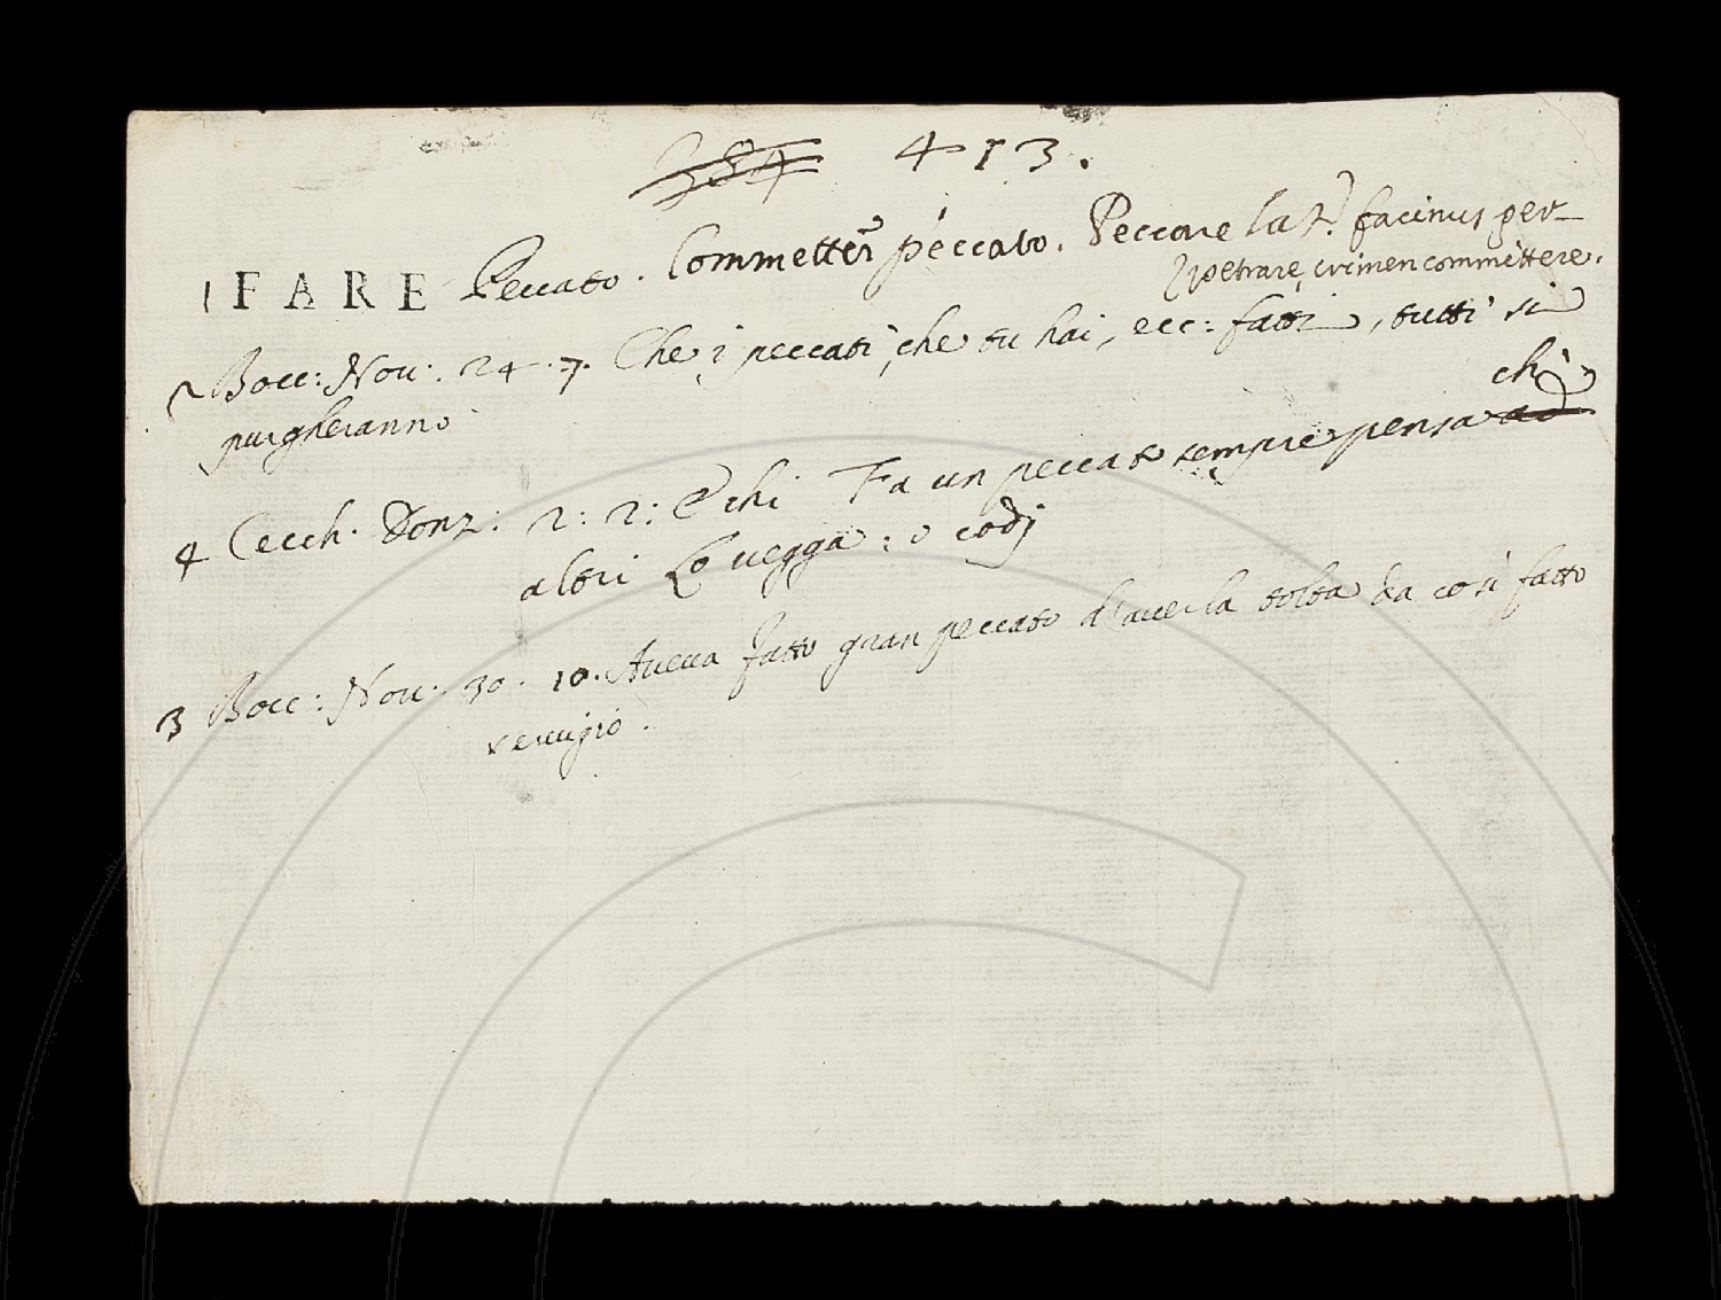 384 413.
1 FARE Peccato. Commetter peccato. Peccare lat. facinus per-
petrare, crimen committere.
2 Bocc: Nov: 24. 7. Che i peccati, che tu hai, ecc: fatti, tutti si
purgheranno
chi
4 Cecch. Donz: 2: 2: E chi Fa un peccato sempre pensa ad
altri Lo vegga: o
3 Bocc: Nov: 30. 10. Aveua fatto gran peccato d'auerla tolta da così fatto
seruigio.